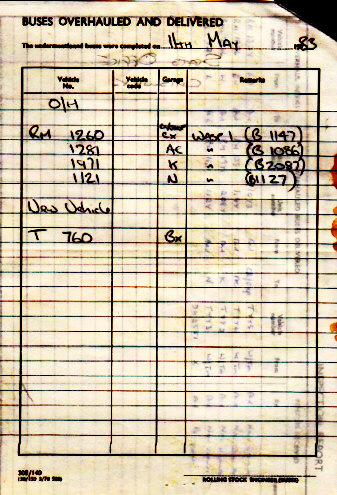 BUSES OVERHAULED AND DELIVERED
The undermentioned buses were completed on 11th MAY 1983
Vehicle No. Vehicle code Garage Remarks
O/H
RM 1260 BX WAS (B 1147)
1287 AC " (B 1086)
1971 K " (B2087)
1121 N " (B1127)
New Vehicle
T 760 BX
305/140
ROLLING STOCK ENGINEER (BUSES)